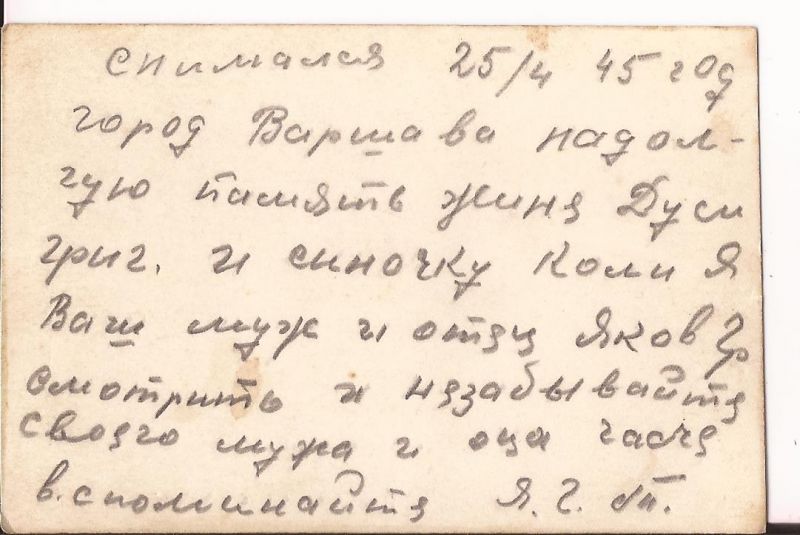 снимался 25/4 45 год
город Варшава надол-
гую память жиня Дуси
григ. и синочку Коли Я
Ваш муж и отец Яков Гр
смотрить и незабывайте
своего мужа и оця часче
в.споминайте Я. Г.